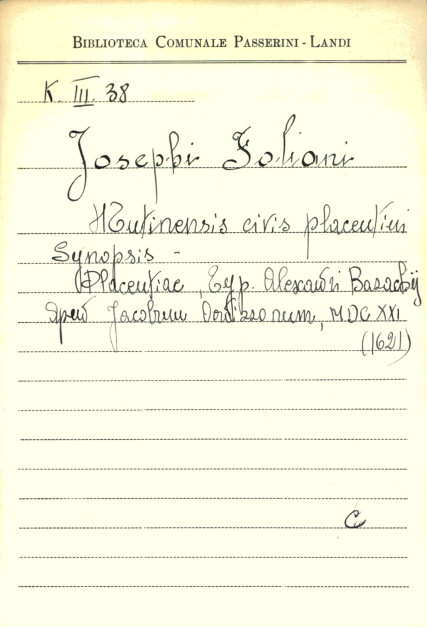 BIBLIOTECA COMUNALE PASSERINI - LANDI
K. III. 38
Josephi Foliani
Mutinensis civis placentini
Synopsis -
Placentiae, Typ. Alexandri Bazachij
apud Jacobum Ardizzonum, MDCXXI
(1621)
C